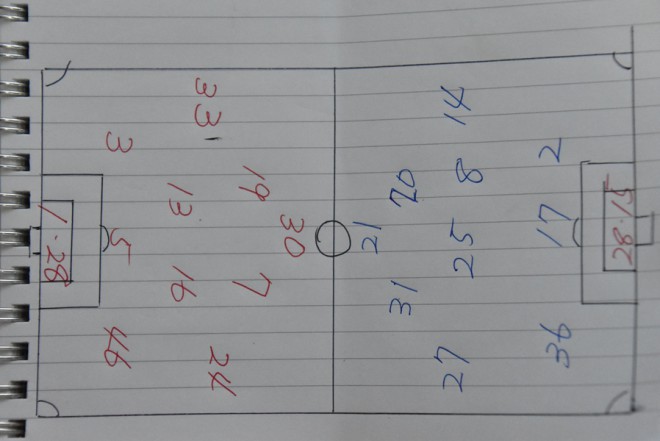 1·28
3
5
46
33
13
16
24
19
7
30
21
20
31
14
8
25
27
2
17
36
28·15